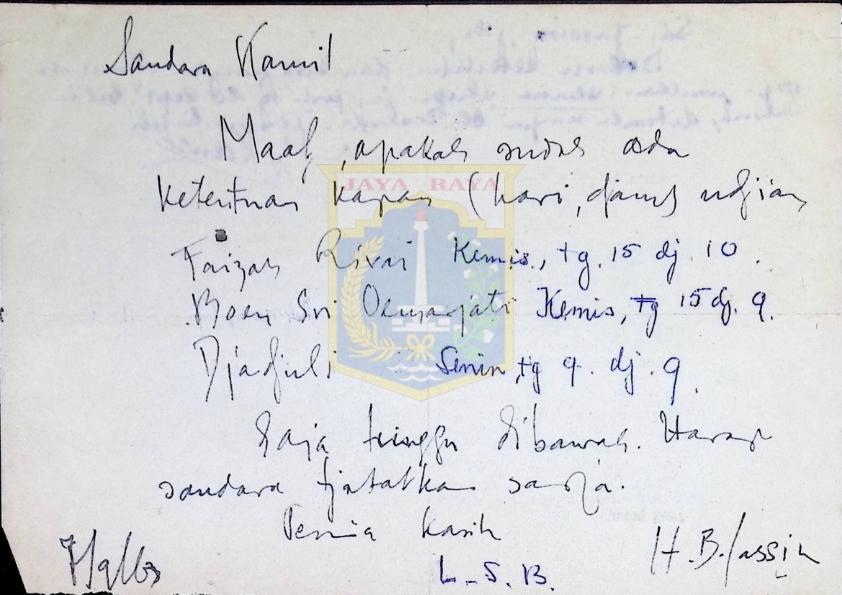 Saudara Kamil
Maaf, apakah sudah ada
ketentuan kapan (hari, djam) udjian
JAYA RAYA
Faizah Rivai Kemis, tg. 15 dj. 10.
Boen Sri Oemarjati Kemis, tg 15 dj. 9.
Djadjuli Senin, tg 9. dj. 9.
Saja tunggu dibawah. Harap
saudara tjatatkan sadja.
Terima kasih
H.B. Jassin
L.S.B.